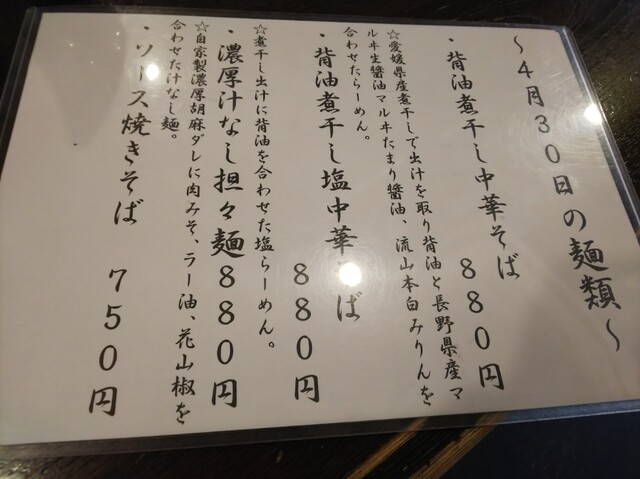 ～４月３０日の麺類～
・背油煮干し中華そば
８８０円
☆愛媛県産煮干しで出汁を取り背油と長野県産マ
ルヰ生醤油マルヰたまり醤油、流山本白みりんを
合わせたらーめん。
・背油煮干し塩中華そば
８８０円
☆煮干し出汁に背油を合わせた塩らーめん。
・濃厚汁なし担々麺８８０円
☆自家製濃厚胡麻ダレに肉みそ、ラー油、花山椒を
合わせた汁なし麺。
・ソース焼きそば　７５０円